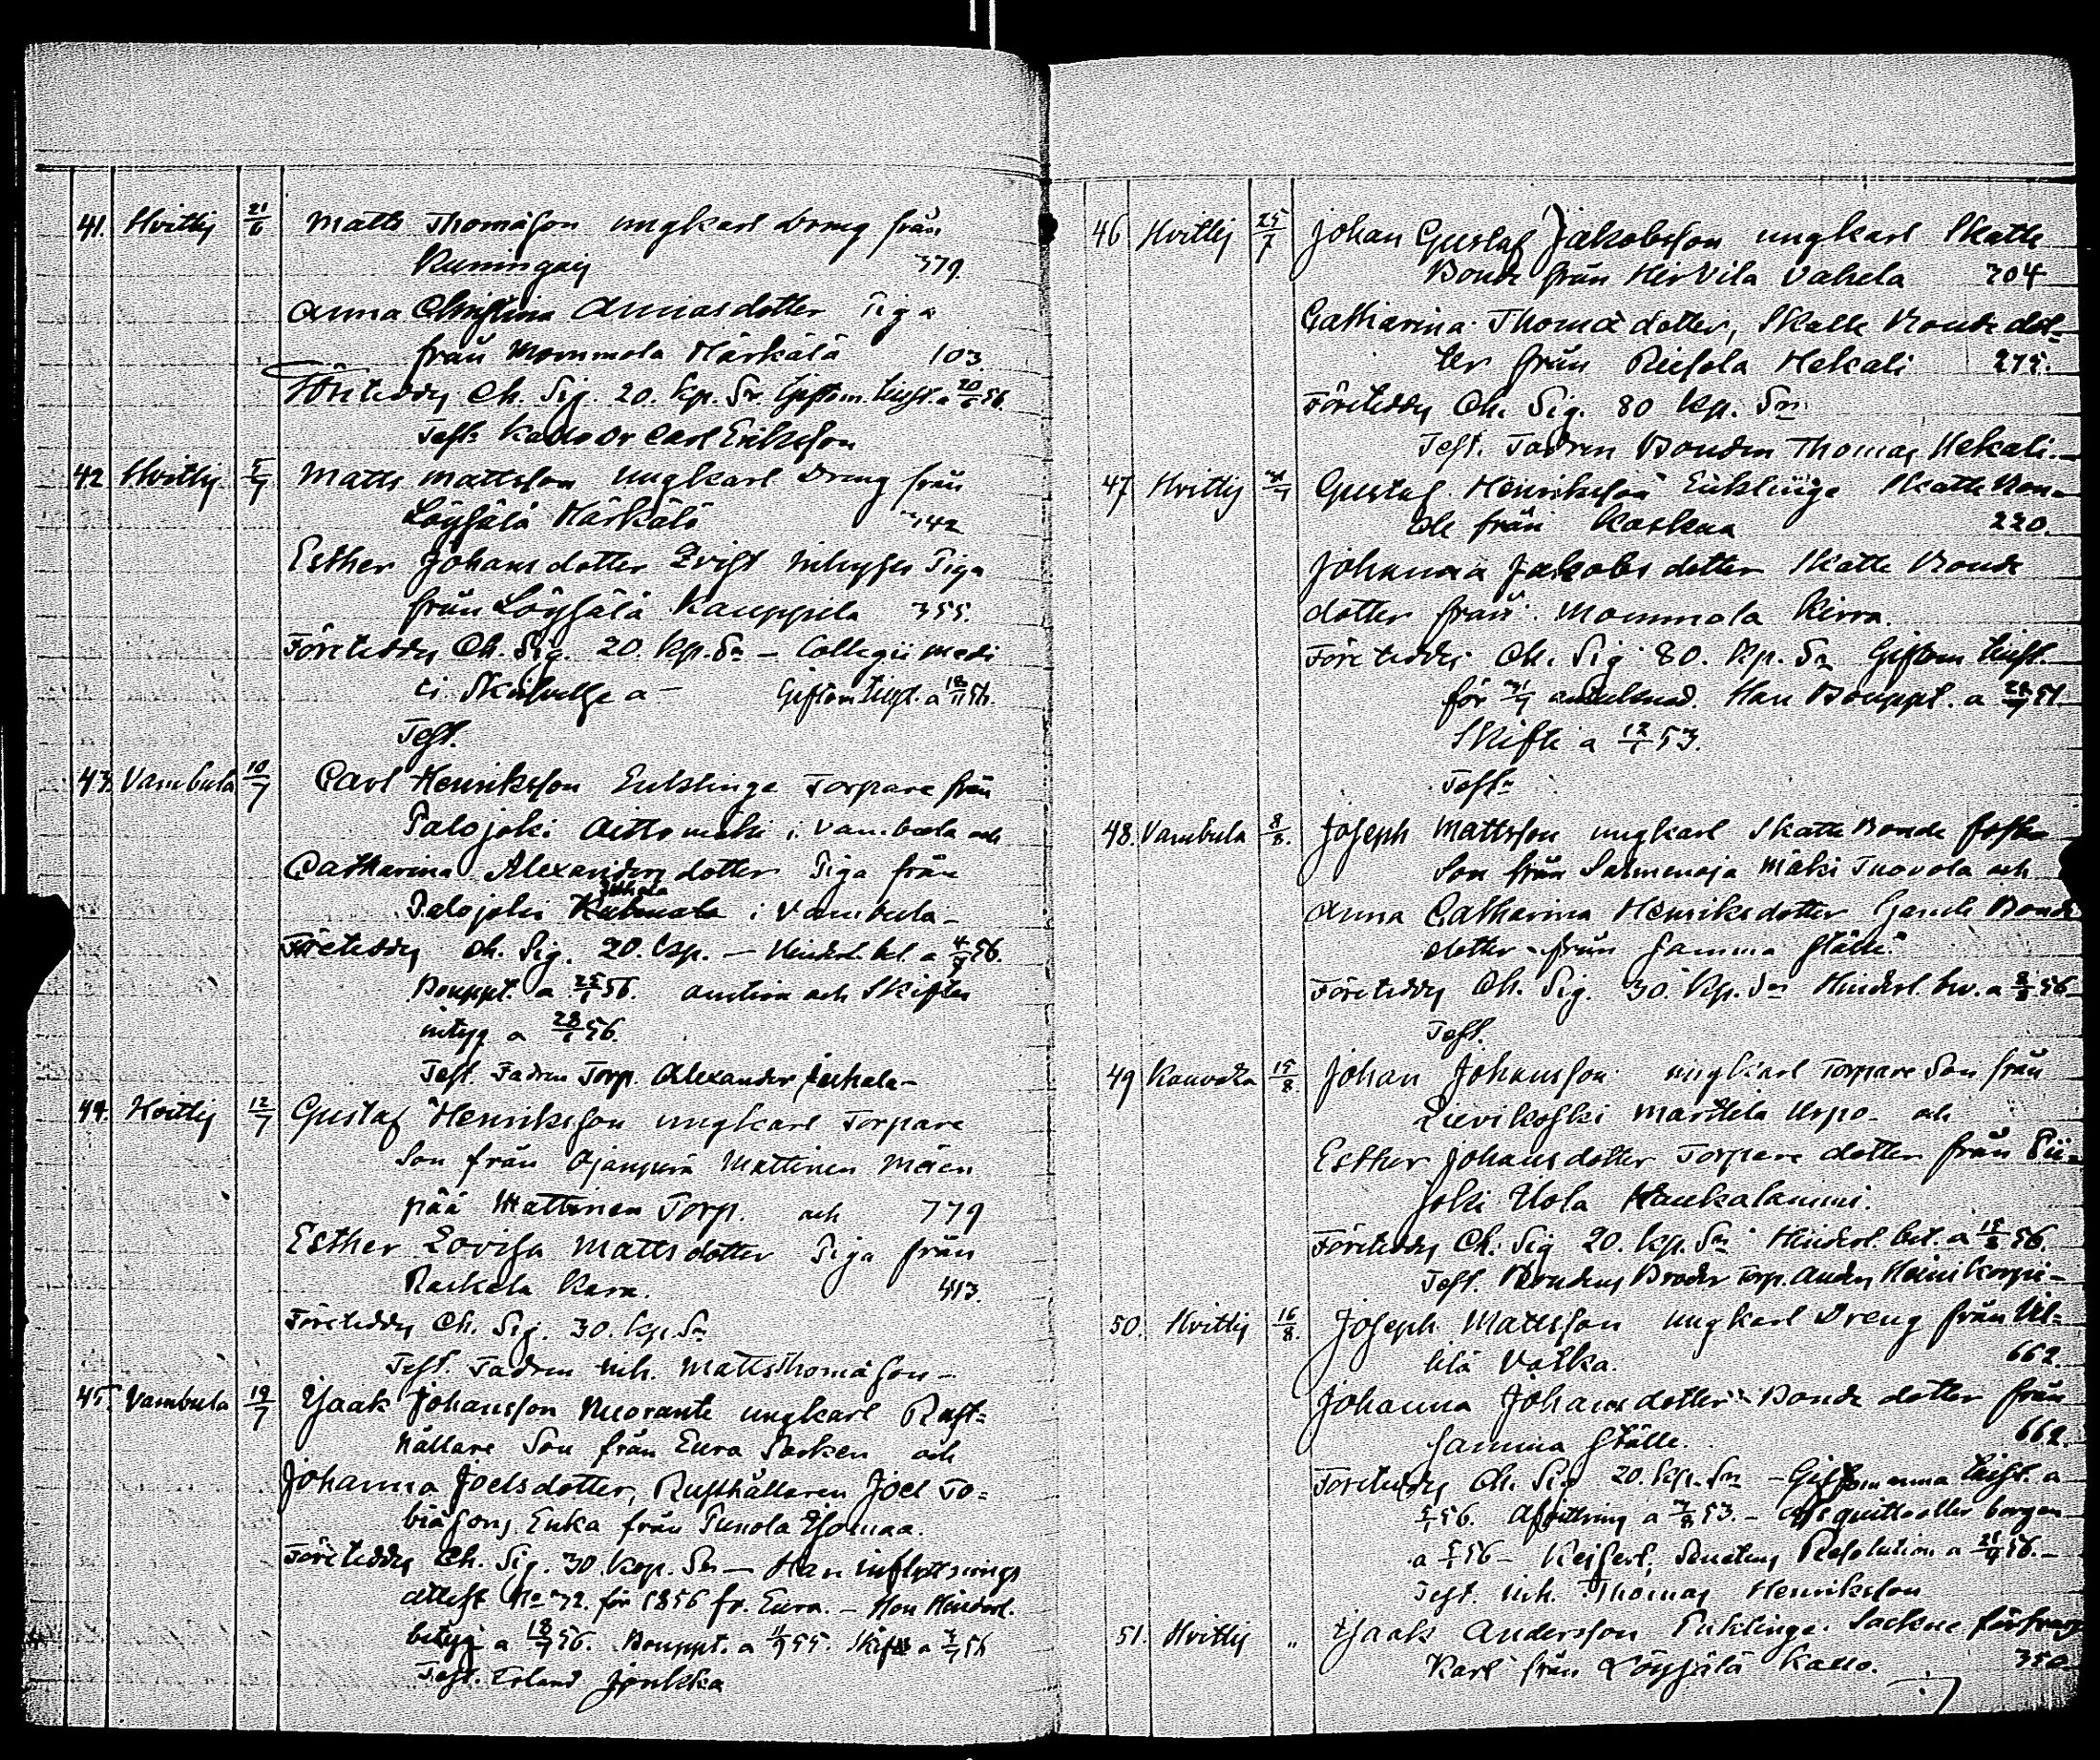 41. Hvittis 21/6 Matts Thomasson ungkarl Dreng från
Kuningais 379
Anna Christina Annasdotter Piga
från Mommola Härkälä 103.
Företeddes Ch. Sig. 20. Kop. Sr. Giftom. tillst. a 20/6 56.
Test. Carl Eriksson
42 Hvittis Matts Mattsson Ungkarl Dreng från
Löysälä Härkälä 342
Esther Johansdotter Qvist Inhyses Piga
från Löysälä Kauppila 355.
Företeddes Ch. Sig. 20. Kp. Sr – Collegii medi
ci Giftom. tillst. a
Test.
43. Vambula 10/7 Carl Henriksson Enklinge Torpare från
Palojoki Aittomäki i Vambula och
Catharina Alexandersdotter Piga från
Juhala
Palojoki i Vambula –
Företeddes Ch. Sig. 20. Kp. – Hinderl. bet. a 4/7 56.
Bouppt. a 25/1 56. auction och Skiftes
intyg a 28/1 56.
Test. Fadren Torp. Alexander Juhala –
44. Hvittis 12/7 Gustaf Henriksson ungkarl Torpare
Son från Ojanperä Mattinen Mäen
pää Mattinen Torp. och 779
Esther Lovisa Mattsdotter Piga från
Raskala Kara. 413.
Företeddes Ch. Sig. 30. Kp. Sr
Test. Fadren inh. Matts Thomasson –
45. Vambula 19/7 Isaak Johansson Nuorante ungkarl Rust=
hållare Son från Eura Socken och
Johanna Joelsdotter, Rusthållaren Joel To=
biässons Enka från Punola Isomaa.
Företeddes Ch. Sig. 30. Kop. Sr – Han inflyttnings
attest No 32. för 1856 fr. Eura. – Hon Hinderl.
betyg a 18/7 56. Bouppt. a 55. Skifte a 56
Test. Erland Junkka
46 Hvittis 25/7 Johan Gustaf Jakobsson ungkarl Skatte
Bonde från Hirvila Vahela 304
Catharina Thomædotter, Skatte Bonde dot=
ter från Riesola Hekali 275.
Företeddes Ch. Sig. 80 Kp. Sr
Test. Fadren Bonden Thomas Hekali. –
47 Hvittis Gustaf Henriksson Enklinge Skatte Bon=
de från Kaskena 220.
Johanna Jakobsdotter Skatte Bonde
dotter från Mommola Kirra.
Företeddes Ch. Sig 80. Kp. Sr Giftom. tillst.
för Han Bouppt. a
Skifte a 12/1 53.
Test.
48. Vambula 8/8. Joseph Mattsson ungkarl Skatte Bonde foster
Son från Salmenoja Mäki Tuovola och
Anna Catharina Henriksdotter Bonde
dotter från samma ställe.
Företeddes Ch. Sig. 30. Kp. Sr Hinderl. bev. a 8/8 56 –
Test.
49 Kauvatsa 15/8. Johan Johansson ungkarl Torpare Son från
Lievikoski Marttila Uspo. och
Esther Johansdotter Torpare dotter från Pii=
joki Uola Haukalammi.
Företeddes Ch. Sig 20. Kp. Sr Hinderl. bet. a 15/8 56.
Test. Brudens Broder Torp. Anders Heinikorpi –
50. Hvittis 16/8. Joseph Mattsson ungkarl Dreng från Vil=
lilä Valka. 662.
Johanna Johansdotter Bonde dotter från
samma ställe. 662.
Företeddes Ch. Sig 20. Kp. Sr – Giftomanna tillst. a
56. Afvittring a 53. – Afs quitto eller borgen
a 56 – Keiserl. Senatens Resolution a 56. –
Test. inh. Thomas Henriksson
51. Hvittis „ Isaak Andersson Enklinge. Sockne
Karl från Löysälä Kallo. 350.